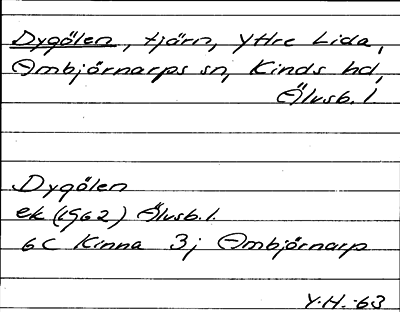 Dygölen, tjärn, Yttre Lida,
Ambjörnarps sn, Kinds hd,
Älvsb. l
Dygölen
ek (1962) Älvsb. l.
6C Kinna 3j Ambjörnarp
Y.H. -63